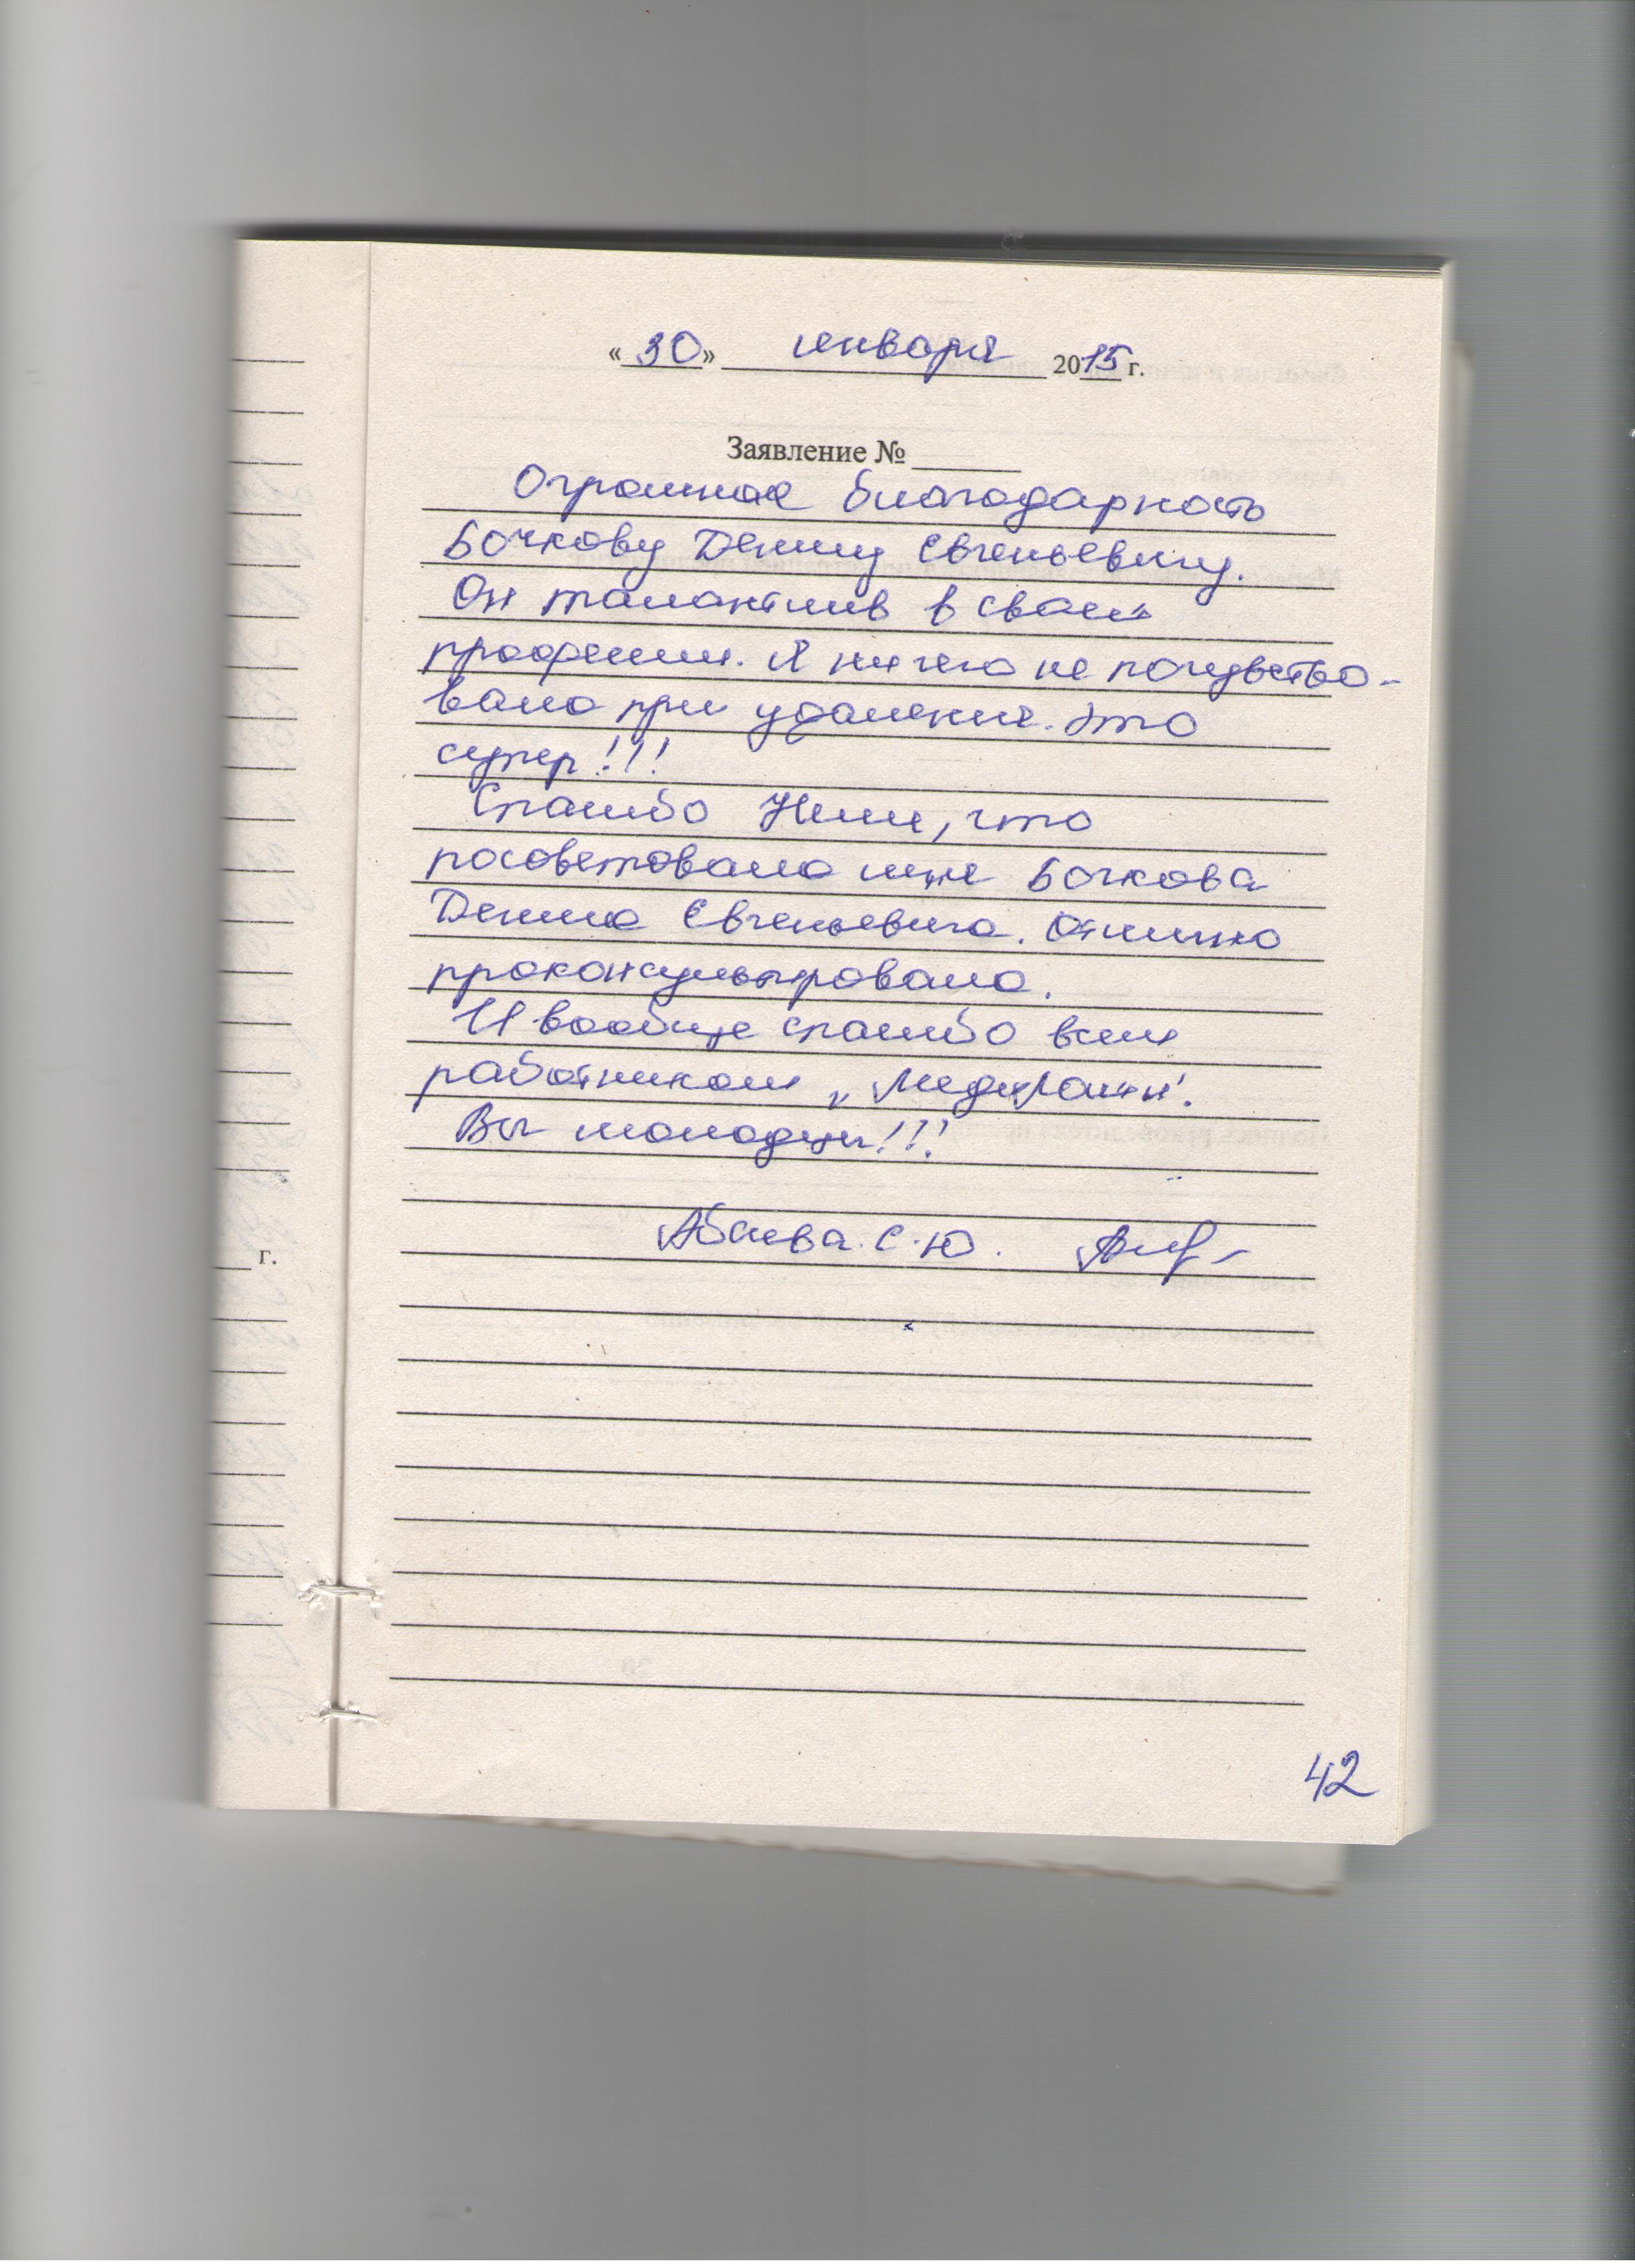 «30» января 2015 г.
Заявление №
Огромная благодарность
Бочкову Денису Евгеньевичу.
Он талантлив в своей
профессии. Я ничего не почувство-
вала при удалении. Это
супер!!!
Спасибо Нине, что
посоветовала мне Бочкова
Дениса Евгеньевича. Отлично
проконсультировала.
И вообще спасибо всем
работникам „МедиЛайн".
Вы молодцы!!!
С.Ю.
г.
42